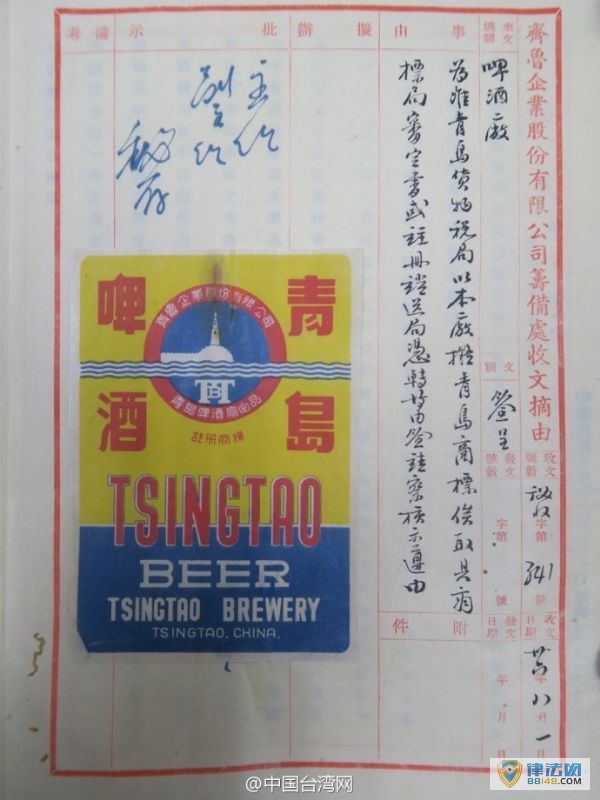 齊魯企業股份有限公司籌備處收文摘由
收文號數
字第
341
號
收文日期
卅六年八月一日
來文機關
啤酒廠
文別
簽呈
發文號數
字第
號
發文日期
年
月
日
事由
為准青島貨物稅局以本廠擬青島商標俟取具商
標局審定書或註冊證送局憑轉等由簽請鑒核示遵由
附件
擬辦
批示
備考
青島
啤酒
齊魯企業股份有限公司
TBT
青島啤酒廠出品
註册商標
TSINGTAO
BEER
TSINGTAO BREWERY
TSINGTAO. CHINA.
@中国台湾网
律法网
88148.com